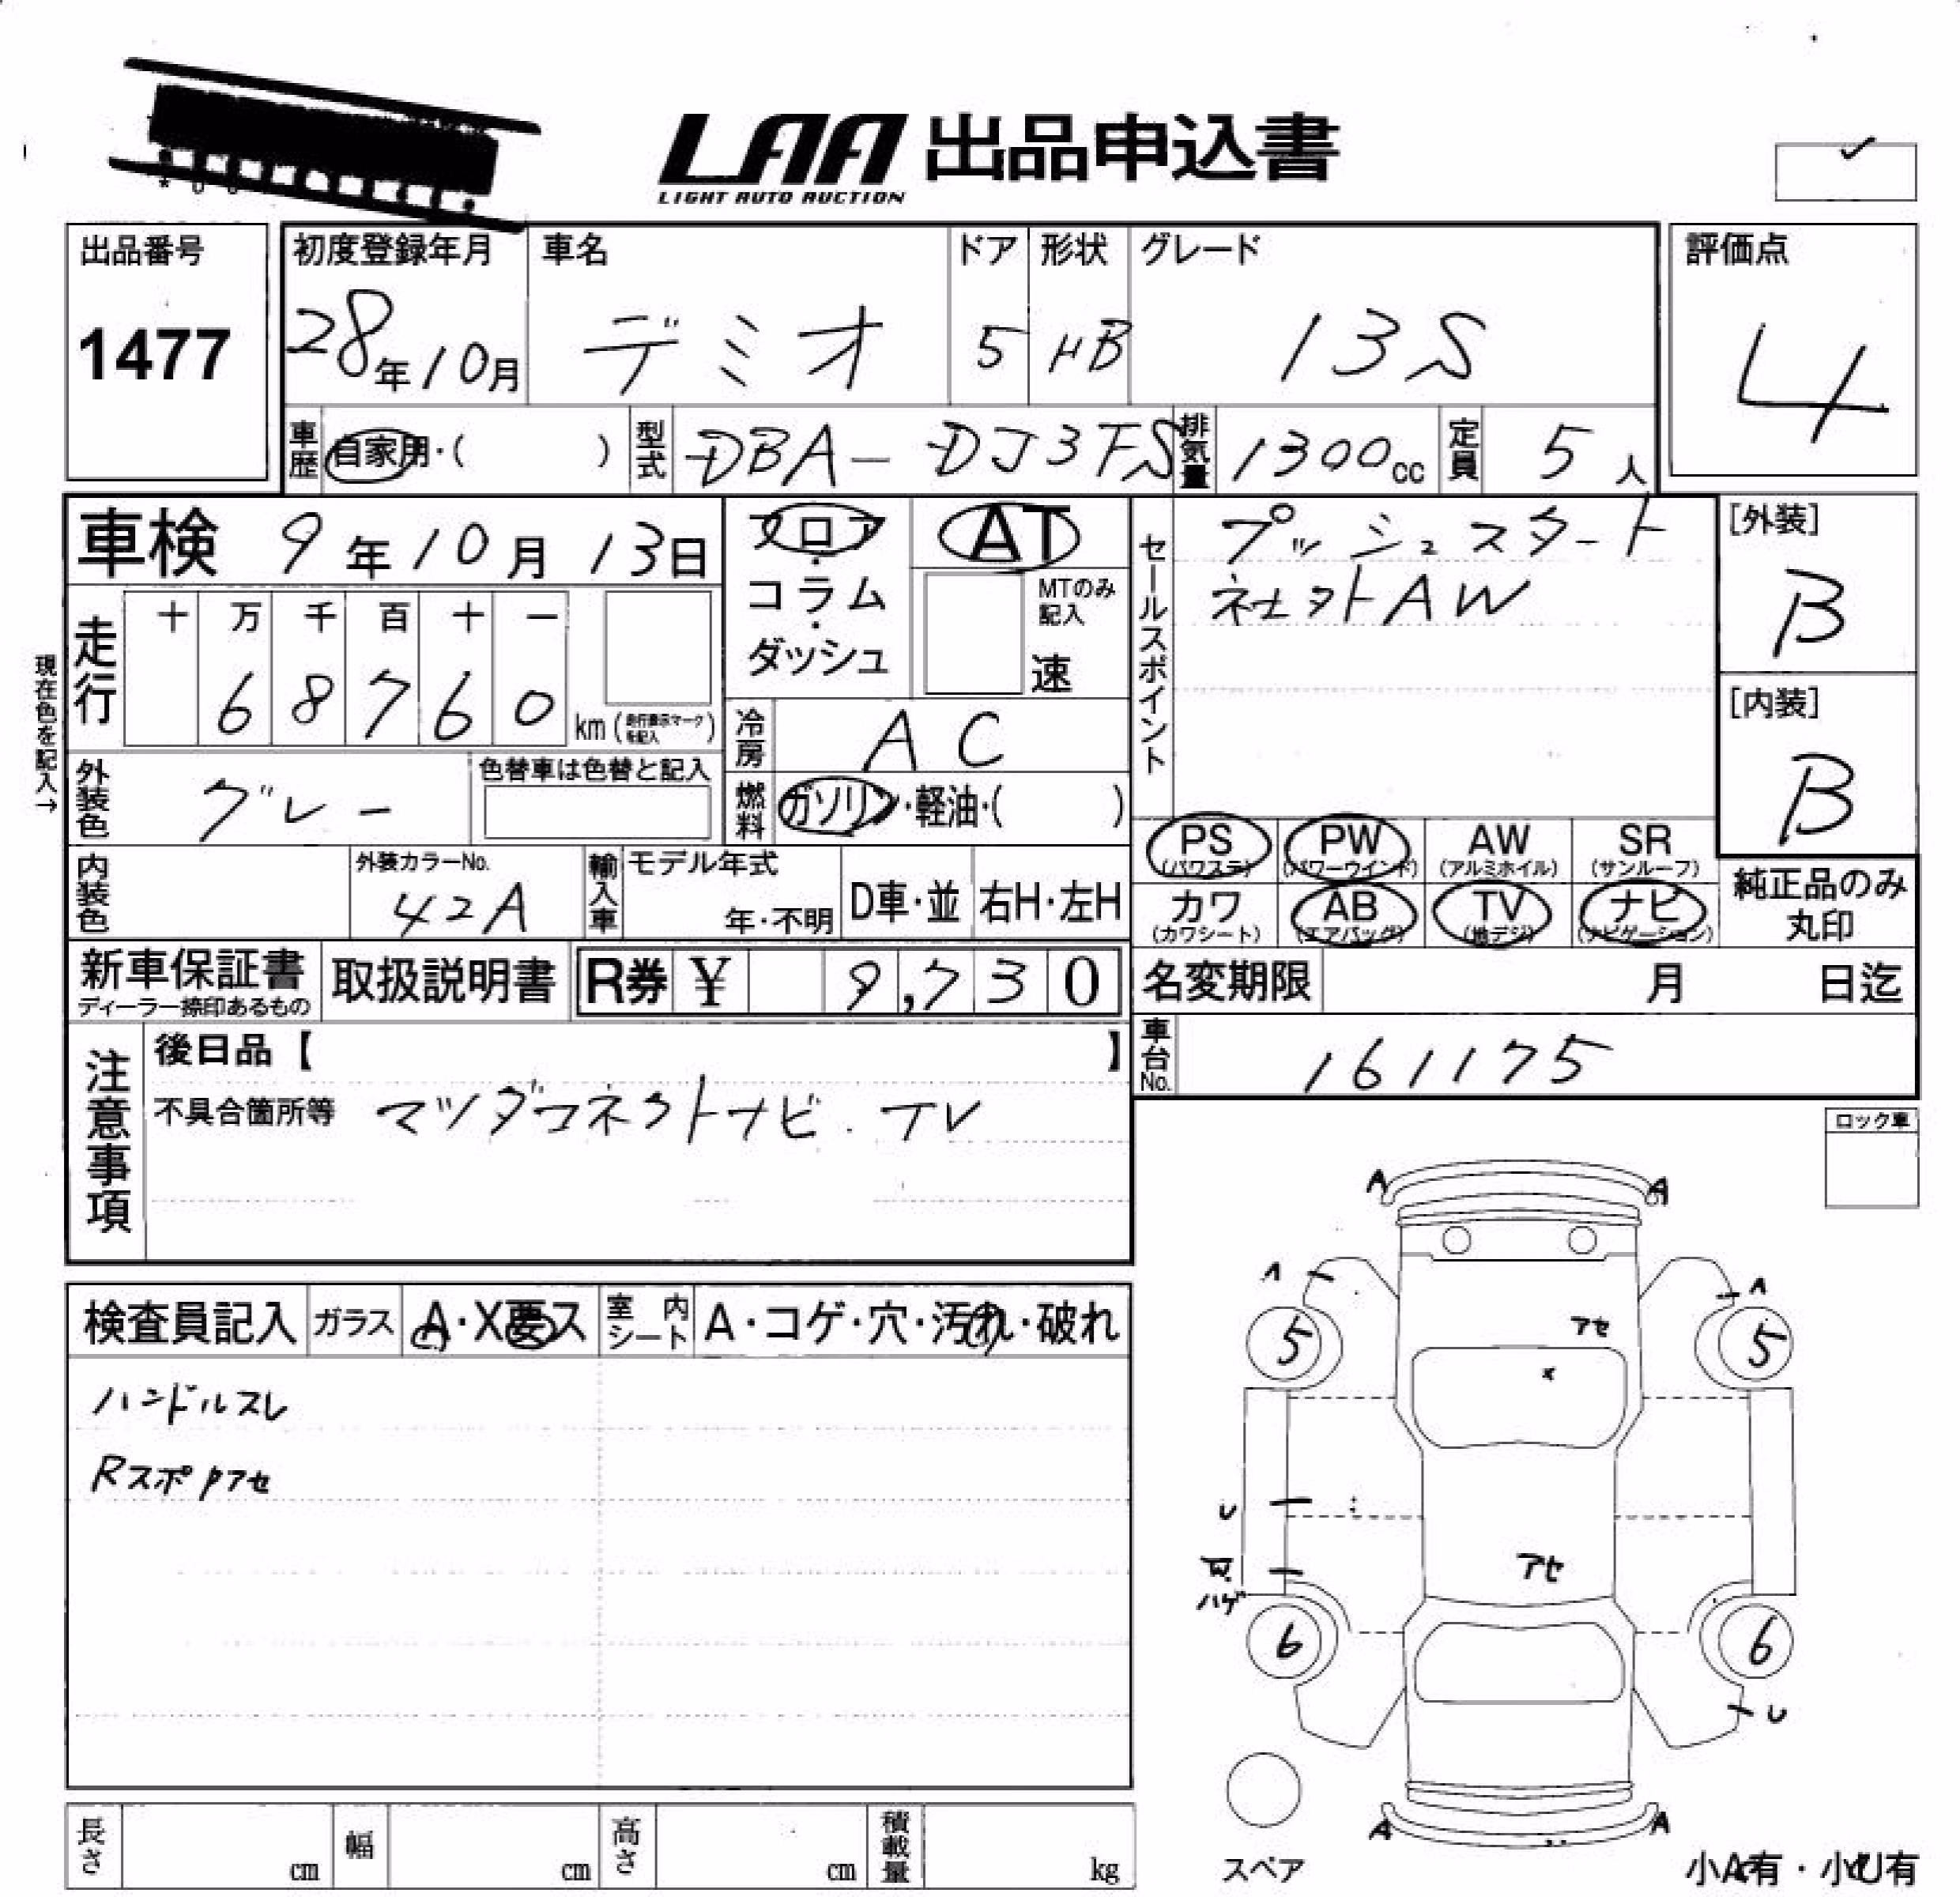 LAA 出品申込書
LIGHT AUTO AUCTION
出品番号
1477
初度登録年月
28年10月
車名
デミオ
ドア
5
形状
HB
グレード
13S
評価点
4
車歴
自家用・( )
型式
DBA-DJ3FS
排気量
1300cc
定員
5人
車検 9年10月13日
走行
十 万 千 百 十 一
6 8 7 6 0
km (走行表示マークを記入)
現在色を記入→
外装色
グレー
色替車は色替と記入
内装色
外装カラーNo.
42A
フロア・コラム・ダッシュ
AT
MTのみ記入
速
冷房
AC
燃料
ガソリン・軽油・( )
輸入車
モデル年式
年・不明
D車・並
右H・左H
セールスポイント
プッシュスタート
社外AW
[外装]
B
[内装]
B
PS (パワステ)
PW (パワーウインド)
AW (アルミホイル)
SR (サンルーフ)
カワ (カワシート)
AB (エアバッグ)
TV (地デジ)
ナビ (ナビゲーション)
純正品のみ丸印
新車保証書
ディーラー捺印あるもの
取扱説明書
R券 ¥ 9,730
名変期限 月 日迄
車台No.
161175
注意事項
後日品【 】
不具合箇所等 マツダコネクトナビ. TV
ロック車
検査員記入
ガラス
A・X要ス
室内シート
A・コゲ・穴・汚れ・破れ
ハンドルスレ
Rスポアセ
A A
A A
アセ
5 5
x
U
アセ
ハゲ
6 6
U
A A
スペア
小A有・小U有
長さ cm
幅 cm
高さ cm
積載量 kg